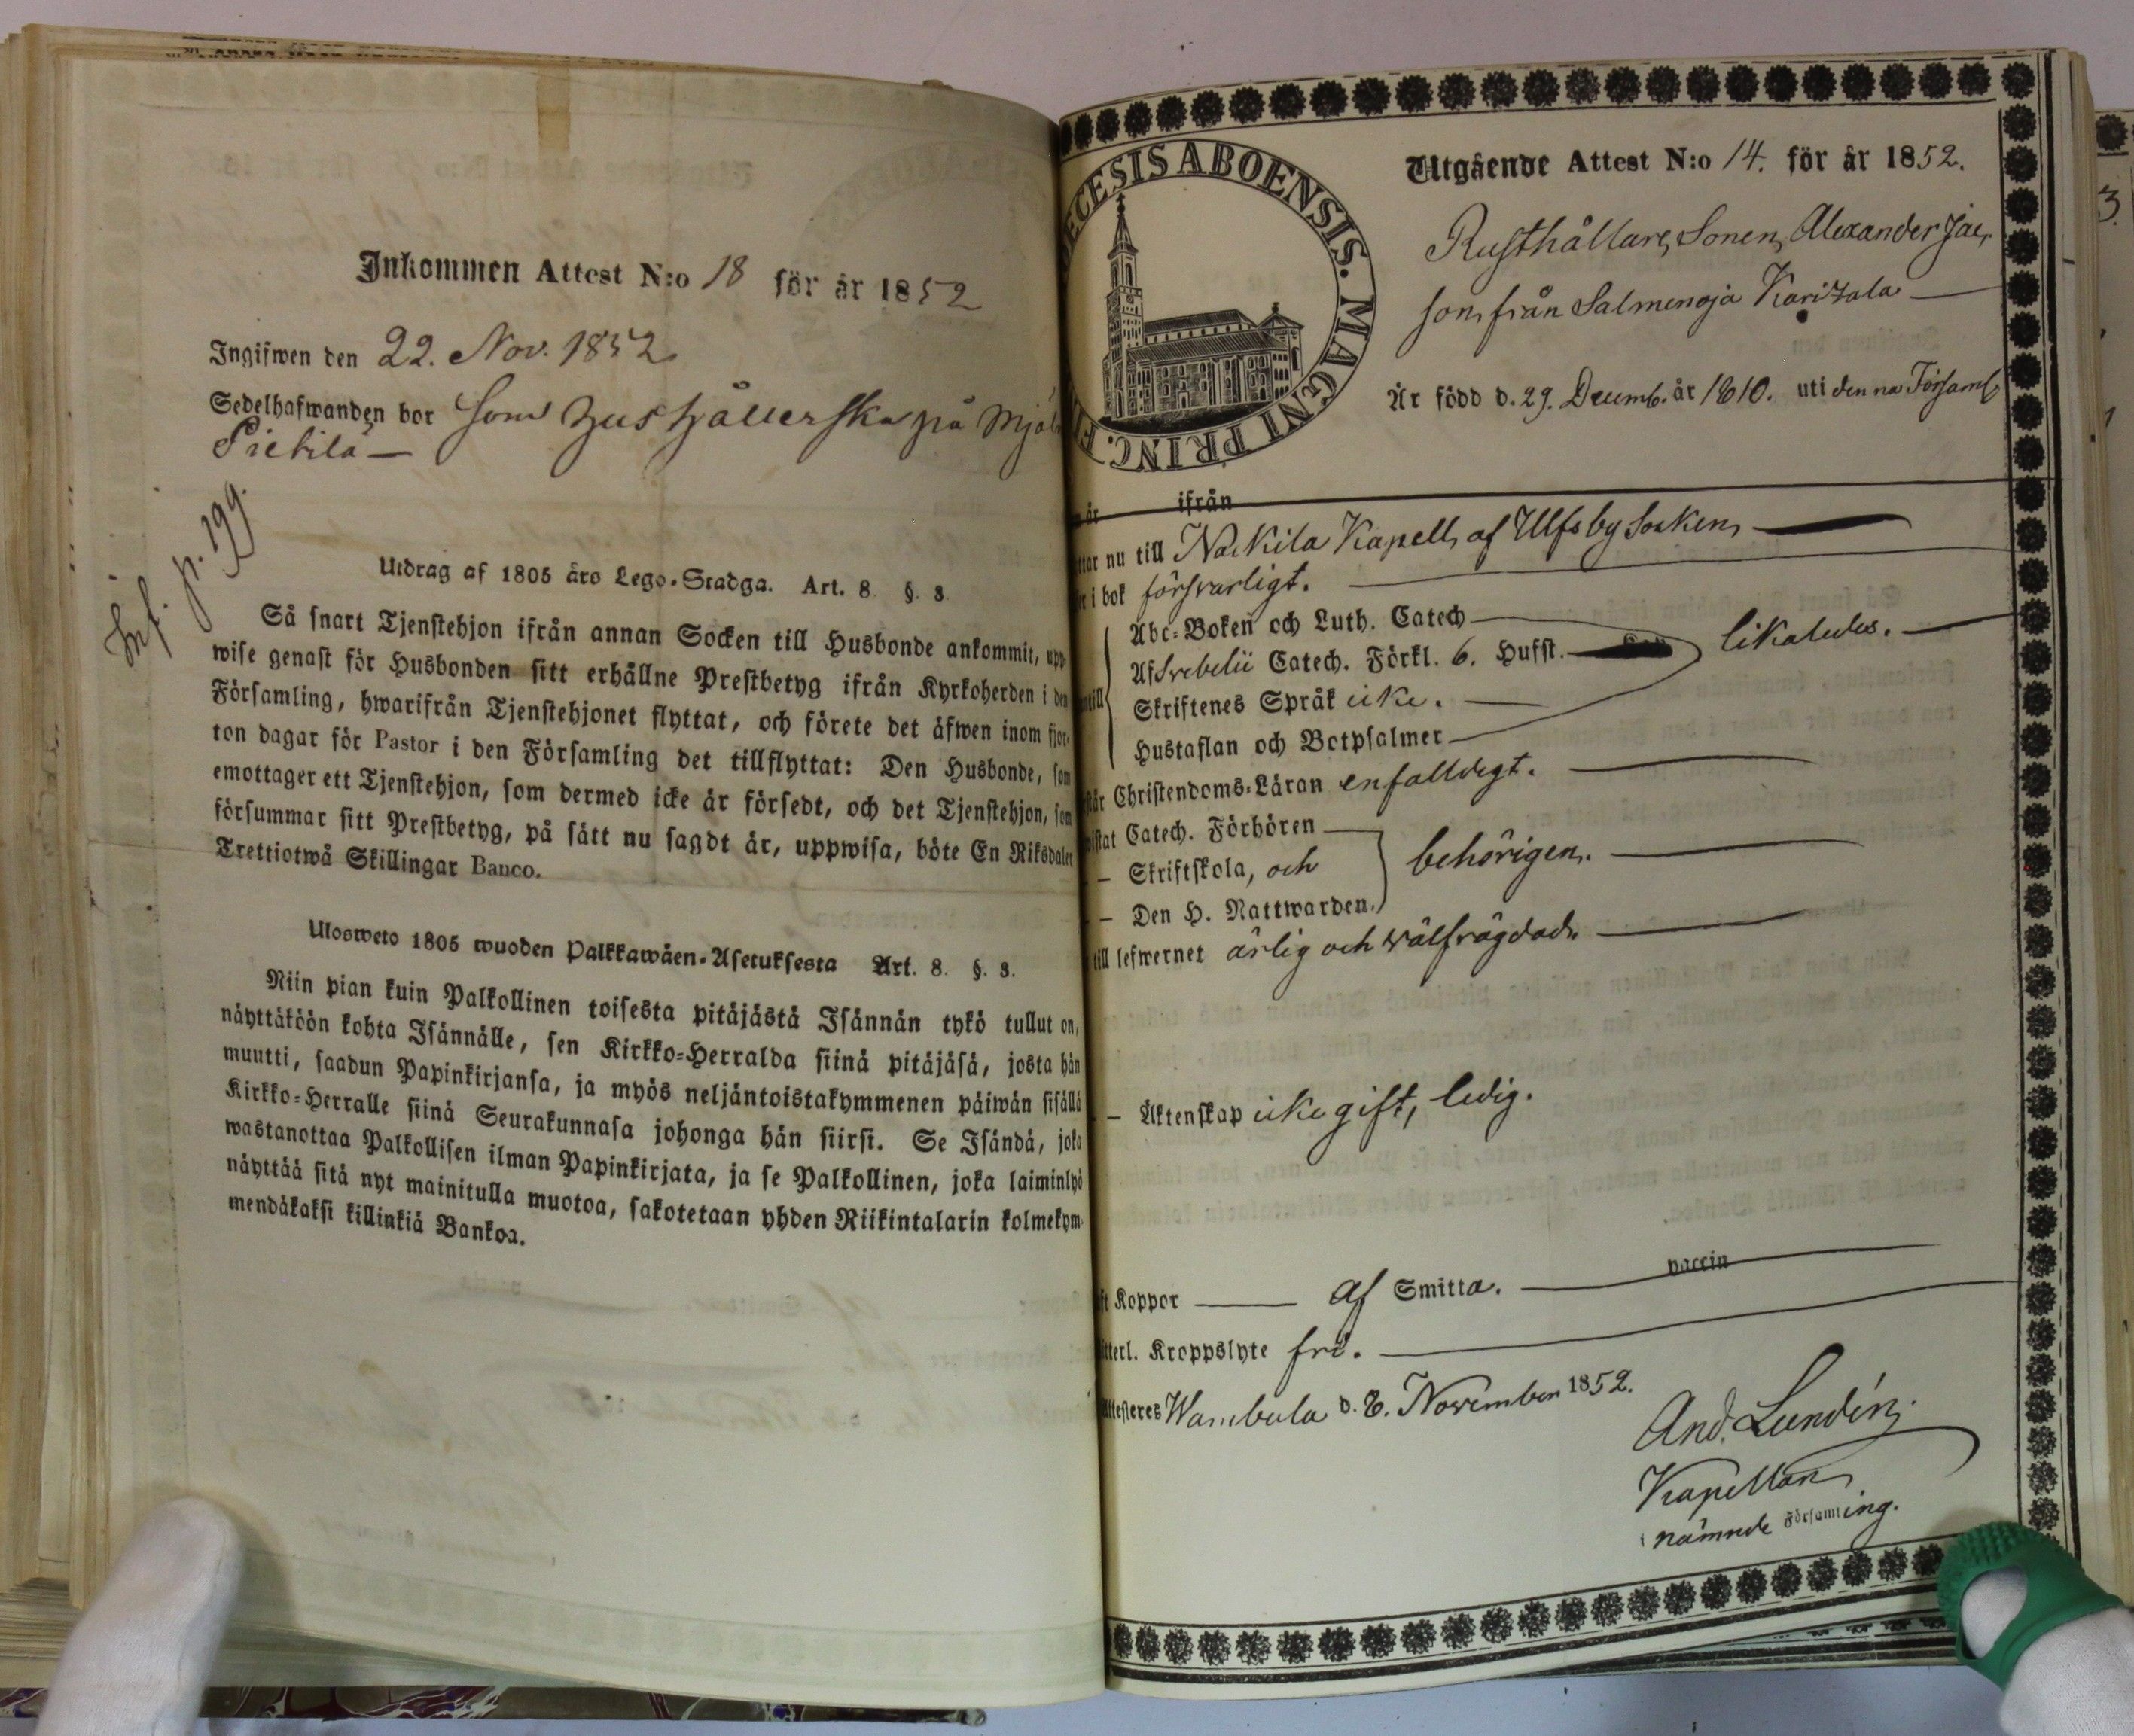 Inkommen Attest N:o 18 för år 1852
Ingifwen den 22. Nov. 1852
Sedelhafwanden bor som hushållerska på
Pietilä —
Inf. p. 199.
Utdrag af 1805 års Lego-Stadga. Art. 8. §. 3.
Så snart Tjenstehjon ifrån annan Socken till Husbonde ankommit, upp-
wise genast för Husbonden sitt erhållne Prestbetyg ifrån Kyrkoherden i den
Församling, hwarifrån Tjenstehjonet flyttat, och förete det äfwen inom fjor-
ton dagar för Pastor i den Församling det tillflyttat: Den Husbonde, som
emottager ett Tjenstehjon, som dermed icke är försedt, och det Tjenstehjon, som
försummar sitt Prestbetyg, på sätt nu sagdt är, uppwisa, böte En Riksdaler
Trettiotwå Skillingar Banco.
Ulosweto 1805 wuoden Palkkawäen-Asetuksesta Art. 8. §. 3.
Niin pian kuin Palkollinen toisesta pitäjästä Isännän tykö tullut on,
näyttäköön kohta Isännälle, sen Kirkko-Herralda siinä pitäjäsä, josta hän
muutti, saadun Papinkirjansa, ja myös neljäntoistakymmenen päiwän sisällä
Kirkko-Herralle siinä Seurakunnasa johonga hän siirsi. Se Isändä, joka
wastanottaa Palkollisen ilman Papinkirjata, ja se Palkollinen, joka laiminlyö
näyttää sitä nyt mainitulla muotoa, sakotetaan yhden Riikintalarin kolmekym-
mendäkaksi killinkiä Bankoa.
ECESIS ABOENSIS. MAGNI PRINC. FI
Utgående Attest N:o 14. för år 1852.
Rusthållare Sonen, Alexander Jac,
son från Salmenoja Karitala —
Är född d. 29. Decemb. år 1810. uti denna Församl
år ifrån
ttar nu till Nackila Kapell, af Ulfsby Socken, —
i bok försvarligt. —
Abc-Boken och Luth. Catech —
Af Svebelii Catech. Förkl. 6. Hufst. — likaledes. —
ntill Skriftenes Språk icke. —
Hustaflan och Botpsalmer —
står Christendoms-Läran enfalldigt. —
wistat Catech. Förhören —
— Skriftskola, och behörigen. —
— Den H. Nattwarden.
till lefwernet ärlig och wälfrägdad. —
— Äktenskap icke gift, ledig.
ft Koppor — af Smitta. — vaccin
itterl. Kroppslyte fri. —
Attesteres Wambula d. 8. November 1852.
And. Lundén.
Kapellan
nämnde Församling.